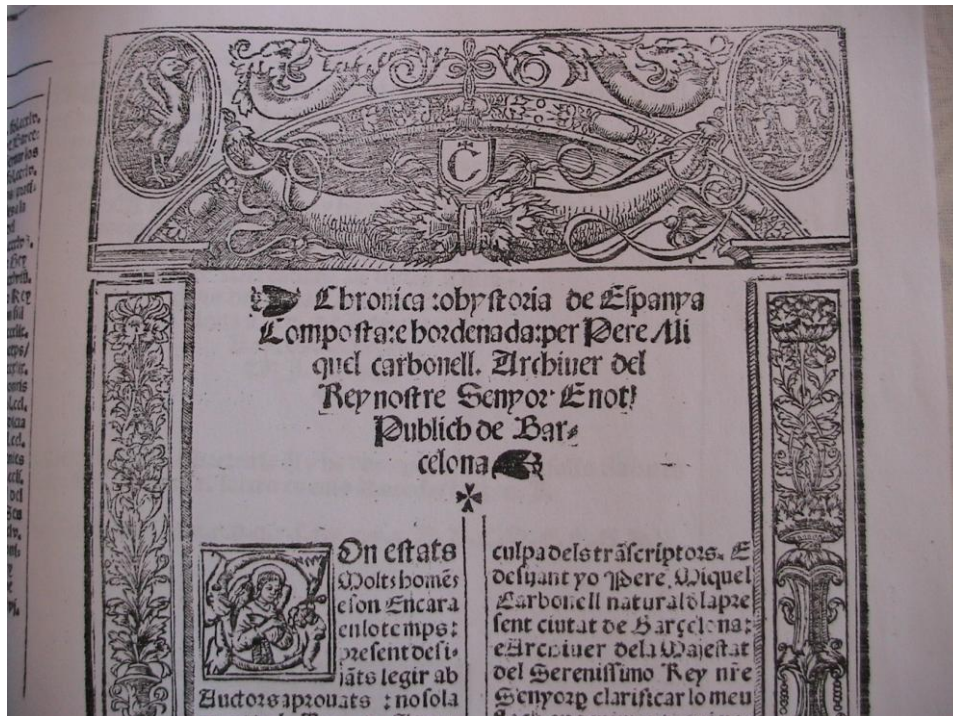 C
Chronica : o hystoria de Espanya
Composta: e hordenada: per Pere Mi
quel carbonell. Archiuer del
Rey nostre Senyor E not/
Publich de Bar⸗
celona
On estats
Molts homēs
e son Encara
en lo temps:
present desi⸗
jāts legir ab
Auctors aprouats : no sola
culpa dels trāscriptors. E
desijant yo Pere Miquel
Carbonell natural d la pre
sent ciutat de Barçelona:
e Archiuer de la Majestat
del Serenissimo Rey nr̄e
Senyor clarificar lo meu